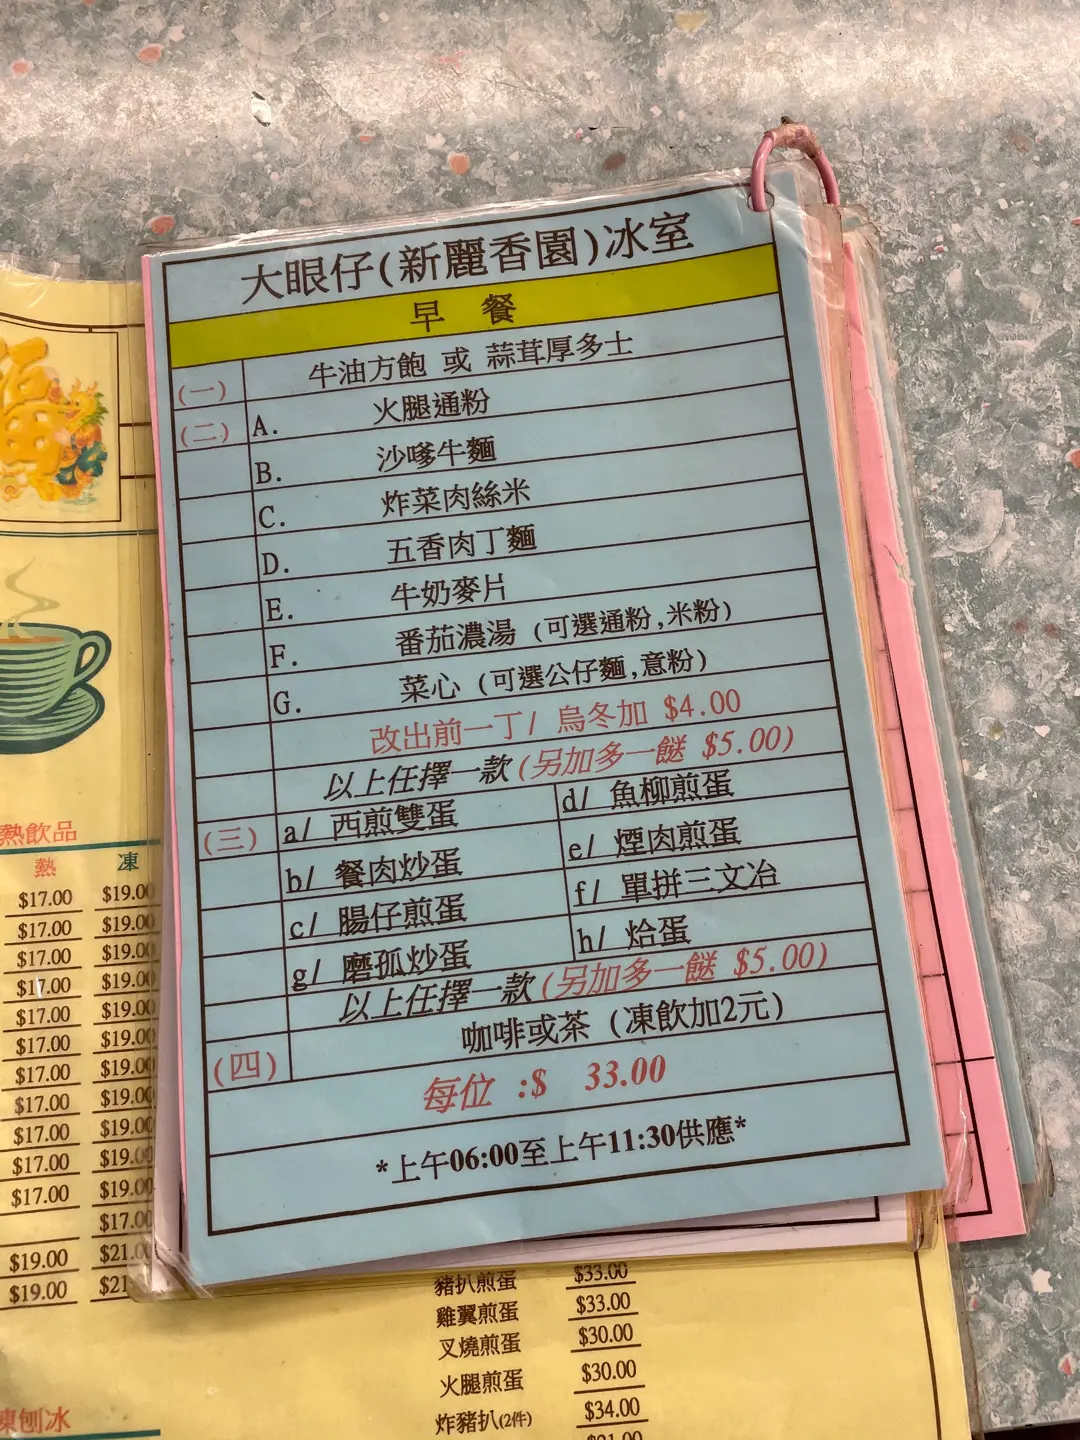 大眼仔(新麗香園)冰室
早 餐
(一) 牛油方飽 或 蒜茸厚多士
(二) A. 火腿通粉
B. 沙嗲牛麵
C. 炸菜肉絲米
D. 五香肉丁麵
E. 牛奶麥片
F. 番茄濃湯 (可選通粉,米粉)
G. 菜心 (可選公仔麵,意粉)
改出前一丁/ 烏冬加 $4.00
以上任擇一款(另加多一餸 $5.00)
(三) a/ 西煎雙蛋 d/ 魚柳煎蛋
b/ 餐肉炒蛋 e/ 煙肉煎蛋
c/ 腸仔煎蛋 f/ 單拼三文冶
g/ 磨孤炒蛋 h/ 烚蛋
以上任擇一款(另加多一餸 $5.00)
(四) 咖啡或茶 (凍飲加2元)
每位 :$ 33.00
*上午06:00至上午11:30供應*
熱飲品
熱 凍
$17.00 $19.00
$17.00 $19.00
$17.00 $19.00
$17.00 $19.00
$17.00 $19.00
$17.00 $19.00
$17.00 $19.00
$17.00 $19.00
$17.00 $19.00
$17.00 $19.00
$17.00 $19.00
$17.00
$19.00 $21.00
$19.00 $21
豬扒煎蛋 $33.00
雞翼煎蛋 $33.00
叉燒煎蛋 $30.00
火腿煎蛋 $30.00
炸豬扒(2件) $34.00
凍刨冰